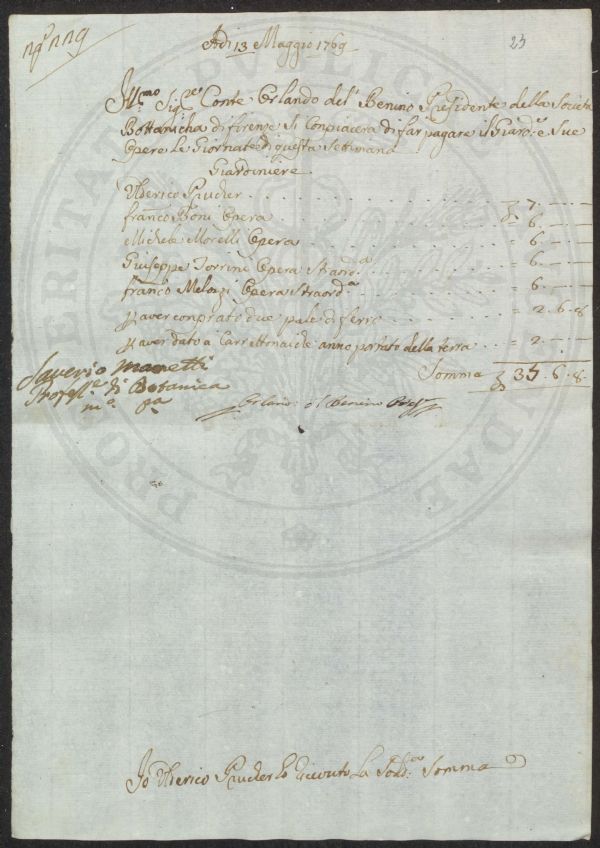 nº 119
23
Adi 13 Maggio 1769
Ill:mo Sig:re Conte Orlando del Benino Presidente della Societa
Bottanicha di firenze si Conpiacera di far pagare il Giard:re e Sue
Opere Le Giornate di questa Settimana
Giardiniere
Ulderico Pruker . . . £ 7. — —
franco Boni Opera . . . = 6. — —
Michele Morelli Opera . . . = 6. — —
Giuseppe Torrini Opera Straord:a . . . = 6. — —
franco Melozi Opera Straord:a . . . = 6. — —
P aver conprato due pale di ferro . . . = 2. 6. 8
P aver dato a Carrettonai che anno portato della terra . . = 2. — —
Somma £ 35. 6. 8
Saverio Manetti
Profess:re di Botanica
m:o p:a
Orlando del Benino Pres:te
Io Ulderico Pruker ò riceuto La Sud:a Somma
PROSPERITATI PUBLICAE AUGENDAE